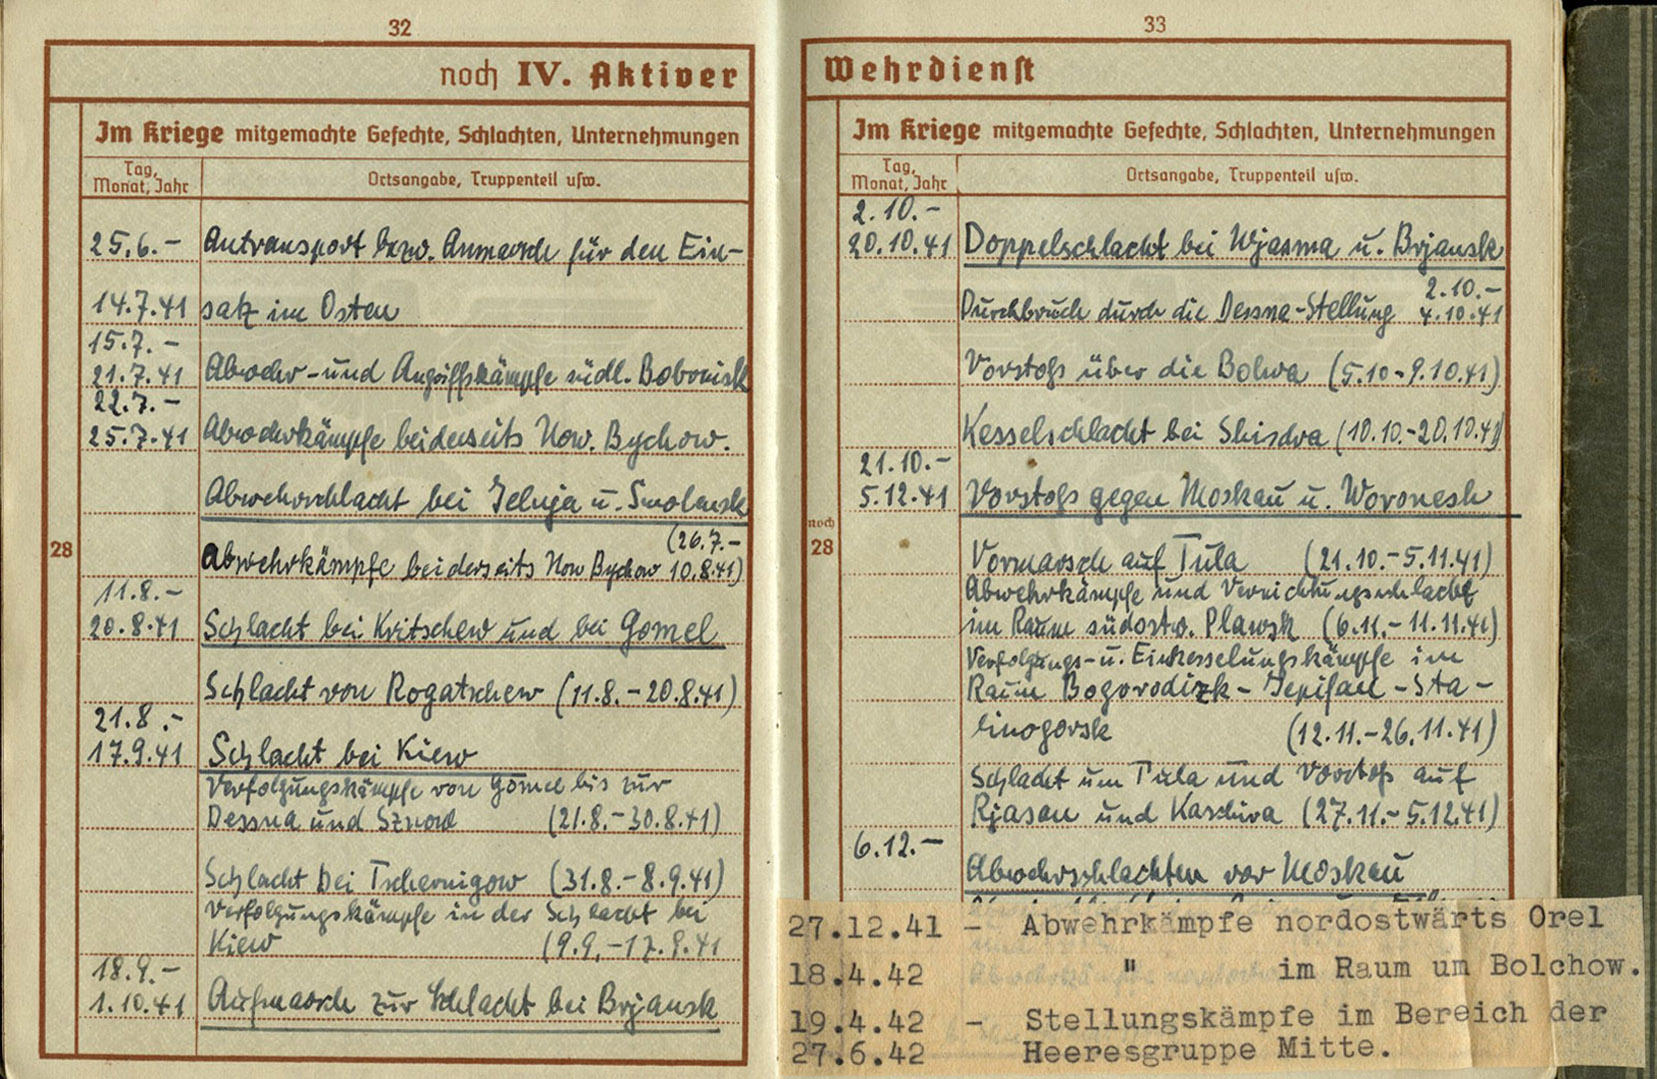 32
noch IV. Aktiver
Im Kriege mitgemachte Gefechte, Schlachten, Unternehmungen
Tag,
Monat, Jahr
Ortsangabe, Truppenteil usw.
25.6.- Antransport bezw. Anmarsch für den Ein-
14.7.41 satz im Osten
15.7.-
21.7.41 Abwehr- und Angriffskämpfe südl. Bobruisk
22.7.-
25.7.41 Abwehrkämpfe beiderseits Now. Bychow.
Abwehrschlacht bei Jelnja u. Smolensk
(26.7.-
28 abwehrkämpfe beiderseits Now Bychow 10.8.41)
11.8.-
20.8.41 Schlacht bei Kritschew und bei Gomel
Schlacht von Rogatschew (11.8.-20.8.41)
21.8.-
17.9.41 Schlacht bei Kiew
Verfolgungskämpfe von Gomel bis zur
Dessna und Sznow (21.8.-30.8.41)
Schlacht bei Tschernigow (31.8.-8.9.41)
Verfolgungskämpfe in der Schlacht bei
Kiew (9.9.-17.9.41
18.9.-
1.10.41 Aufmarsch zur Schlacht bei Brjansk
33
Wehrdienst
Im Kriege mitgemachte Gefechte, Schlachten, Unternehmungen
Tag,
Monat, Jahr
Ortsangabe, Truppenteil usw.
2.10.-
20.10.41 Doppelschlacht bei Wjasma u. Brjansk
2.10.-
Durchbruch durch die Dessna-Stellung 4.10.41
Vorstoß über die Bolwa (5.10-9.10.41)
Kesselschlacht bei Shisdra (10.10.-20.10.41)
21.10.-
5.12.41 Vorstoß gegen Moskau u. Woronesh
noch
28 Vormarsch auf Tula (21.10.-5.11.41)
Abwehrkämpfe und Vernichtungsschlacht
im Raum südostw. Plawsk (6.11.-11.11.41)
Verfolgungs- u. Einkesselungskämpfe im
Raum Bogorodizk-Jepifan-Sta-
linogorsk (12.11.-26.11.41)
Schlacht um Tula und Vorstoß auf
Rjasan und Kaschira (27.11.-5.12.41)
6.12.-
Abwehrschlachten vor Moskau
27.12.41 - Abwehrkämpfe nordostwärts Orel
18.4.42 " im Raum um Bolchow.
19.4.42 - Stellungskämpfe im Bereich der
27.6.42 Heeresgruppe Mitte.